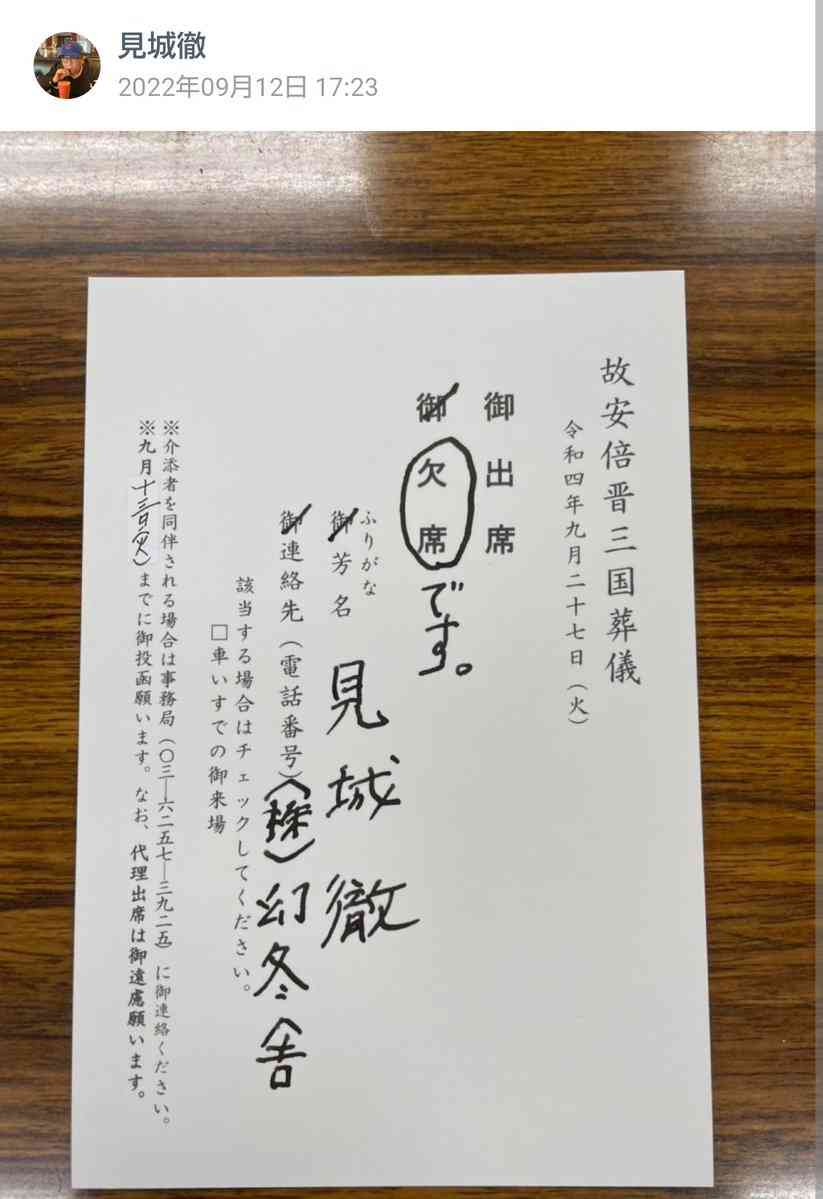 見城徹
2022年09月12日 17:23
故安倍晋三国葬儀
令和四年九月二十七日（火）
御出席
御欠席です。
ふりがな
御芳名 見城徹
御連絡先（電話番号）（株）幻冬舎
該当する場合はチェックしてください。
□車いすでの御来場
※介添者を同伴される場合は事務局（〇三―六二五七―三九二五）に御連絡ください。
※九月十三日（火）までに御投函願います。なお、代理出席は御遠慮願います。